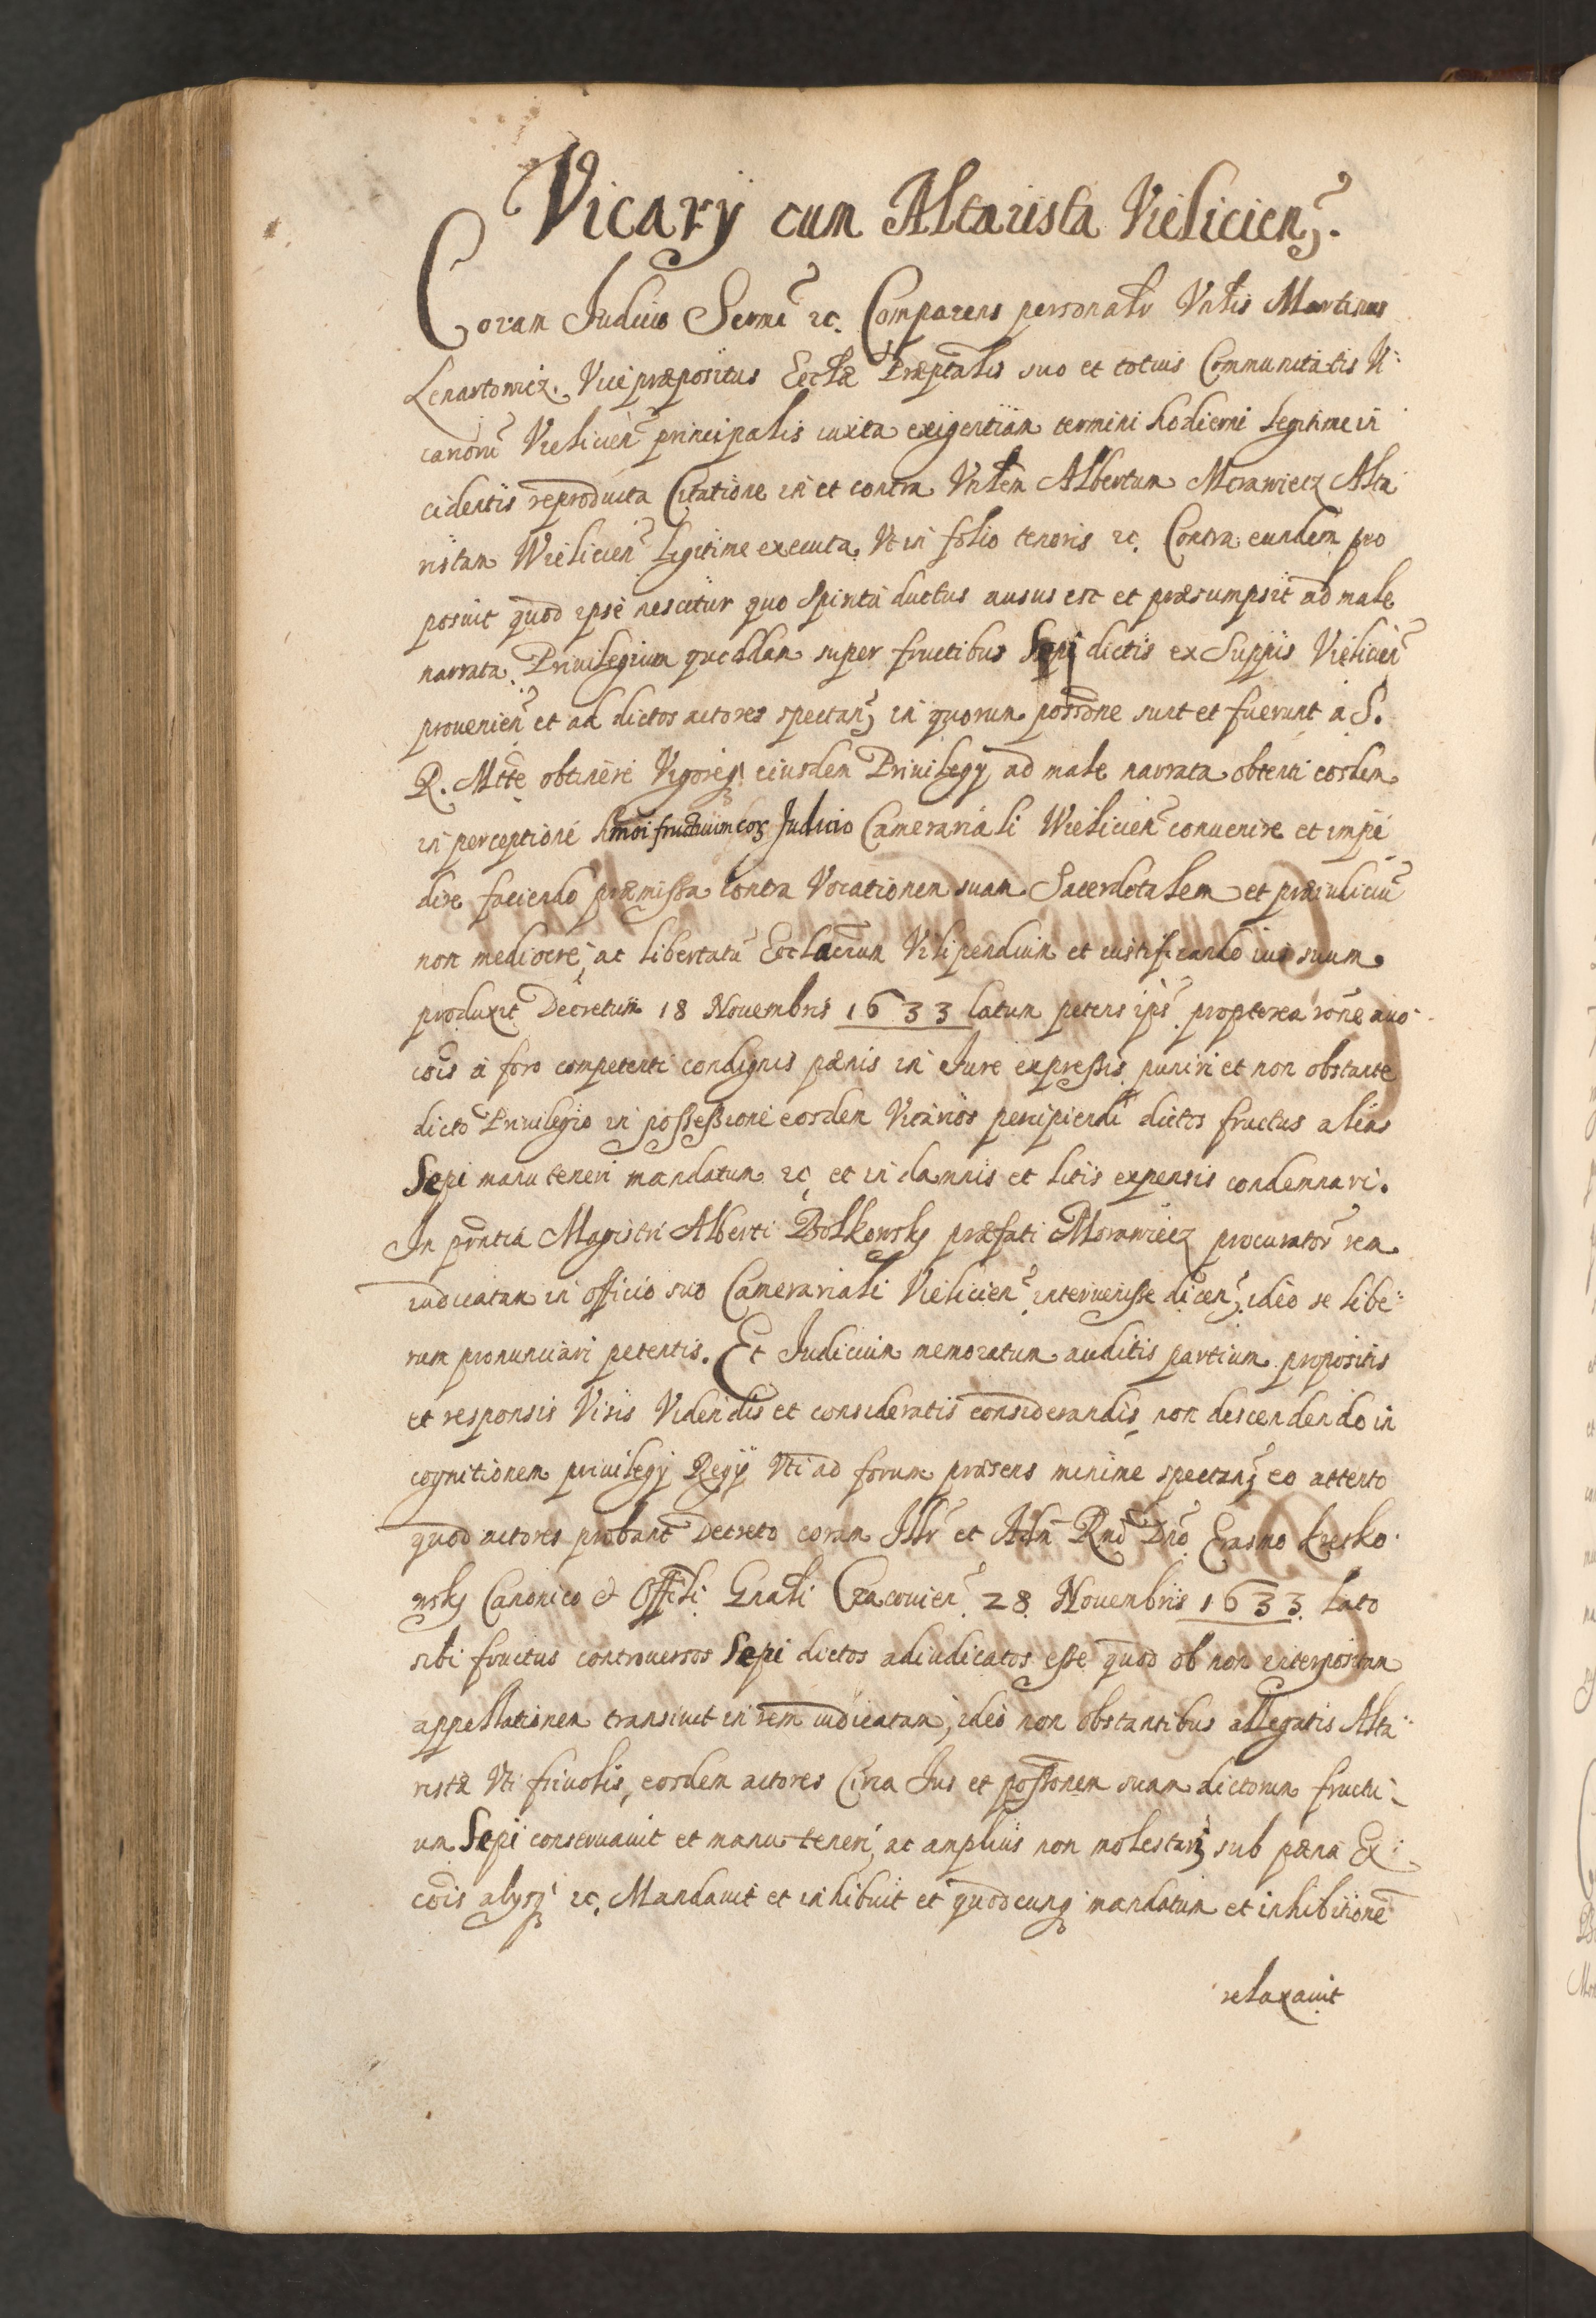 Vicarÿ cum Altarista Vielicien̄.
Coram Judicio Sermi ꝛc. Comparens personalr Vnlis Martinus
Lenartowicz. Vicepræpositus Ecclæ Præptalis suo et totius Communitatis Vi:
carioru̅ Vielicien̄ principalis iuxta exigentiam termini hodierni legitime in
cidentis reproducta Citatione in et contra Vnlem Albertum Morawiecz Alta
ristam Wielicien̄ legitime executa. Vt in folio tenoris ꝛc. Contra eundem pro
posuit quod ipse nescitur quo Spiritu ductus ausus est et præsumpsit ad male
narrata Priuilegium quoddam super fructibus Sepi dictis ex Suppis Vielicien̄
prouenien̄ et ad dictos actores spectan̄ in quorum possone sunt et fuerunt a S.
R. Mtte obtinere Vigoreq̨ eiusdem Priuilegÿ ad male narrata obtenti eosdem
in perceptione hmoi fructuum cor. Judicio Camerariali Wielicien̄ conuenire et impe
dire faciendo præmissa contra Vocationem suam Sacerdotalem et præiudiciu̅
non mediocre, ac libertatu̅ Ecclarum Vilipendium et iustificando ius suum
produxit Decretum 18 Nouembris 1633 latum petens ips̄ propterea rone auo
cois a foro competenti condignis pænis in Jure expressis puniri et non obstante
dicto Priuilegio in possessione eosdem Vicarios percipiendi dictos fructus alias
Sepi manuteneri mandatum ꝛc et in damnis et litis expensis condemnari.
In pn̄tia Magistri Alberti Bolkowskÿ præfati Morawiecz procurator̄ rem
iudicatam in officio suo Camerariali Vielicien̄ interuenisse dicen̄, ideo se libe:
rum pronunciari petentis. Et Judicium memoratum auditis partium propositis
et responsis Visis Videndis et consideratis considerandis, non descendendo in
cognitionem priuilegÿ Regÿ Vti ad forum præsens minime spectan̄ eo attento
quod actores probant Decreto coram Illr̄ et Adm̄ Rnd̄ Dno Erasmo Kresko:
wskÿ Canonico & Offcli Gnali Cracouien̄ 28 Nouembris 1633 lato
sibi fructus controuersos Sepi dictos adiudicatos esse quod ob non interpositam
appellationem transiuit in rem iudicatam, ideo non obstantibus allegatis Alta:
ristæ Vti friuolis, eosdem actores Circa Jus et possonem suam dictorum fructu:
um Sepi conseruauit et manuteneri, ac amplius non molestari, sub pæna Ex:
cois alÿsq̨ ꝛc. Mandauit et inhibuit et quodcunq̨ mandatum et inhibitione̅
relaxauit